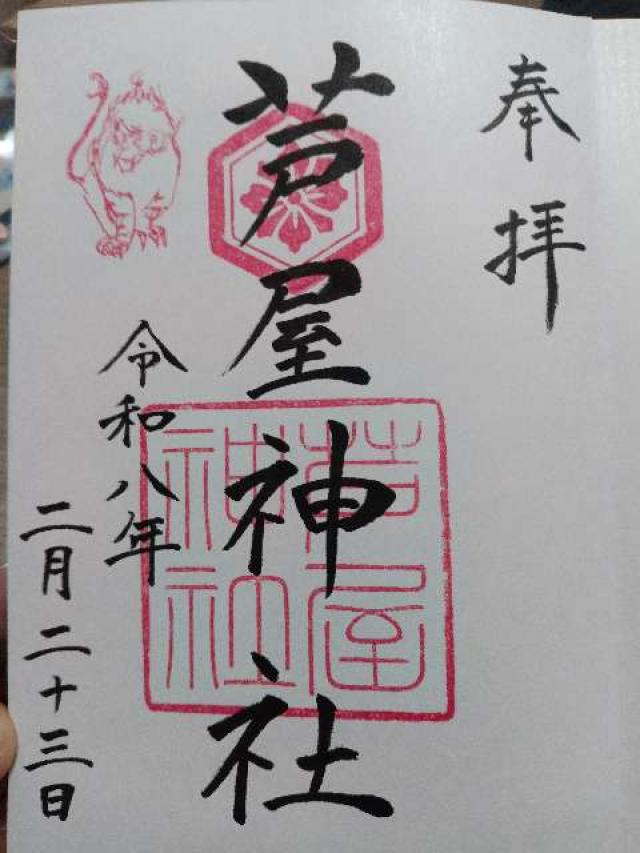 奉拝
芦屋神社
芦屋
神社
令和八年
二月二十三日